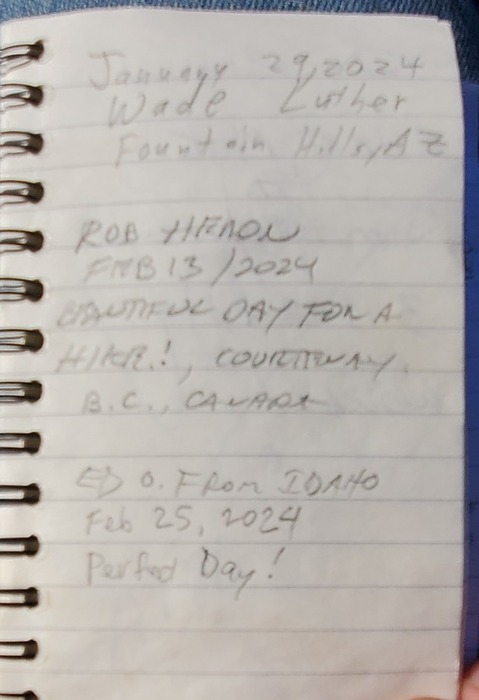 January 29, 2024
Wade Luther
Fountain Hills, AZ
ROB HERON
FEB 13 / 2024
BEAUTIFUL DAY FOR A
HIKE!, COURTENAY,
B.C., CANADA
ED O. FROM IDAHO
Feb 25, 2024
Perfect Day!